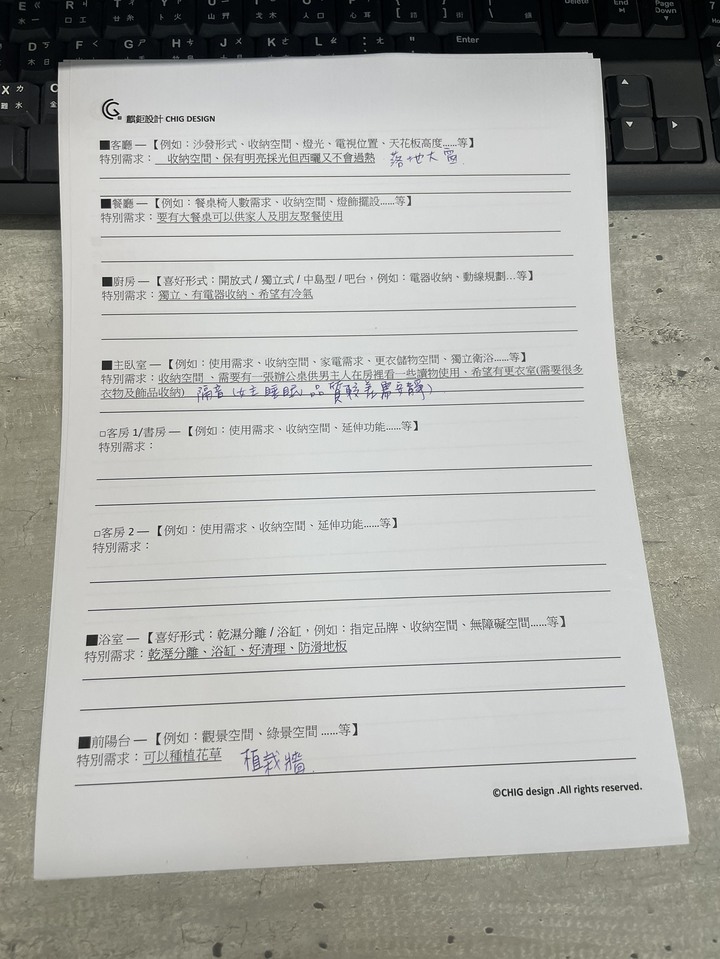 麒鉅設計 CHIG DESIGN
■客廳 —【例如：沙發形式、收納空間、燈光、電視位置、天花板高度......等】
特別需求： 收納空間、保有明亮採光但西曬又不會過熱 落地大窗
■餐廳 —【例如：餐桌椅人數需求、收納空間、燈飾擺設......等】
特別需求：要有大餐桌可以供家人及朋友聚餐使用
■廚房 —【喜好形式：開放式 / 獨立式 / 中島型 / 吧台，例如：電器收納、動線規劃...等】
特別需求：獨立、有電器收納、希望有冷氣
■主臥室 —【例如：使用需求、收納空間、家電需求、更衣儲物空間、獨立衛浴......等】
特別需求：收納空間 、需要有一張辦公桌供男主人在房裡看一些讀物使用、希望有更衣室(需要很多
衣物及飾品收納) 隔音(女主睡眠品質較差需安靜)
□客房 1/書房 —【例如：使用需求、收納空間、延伸功能......等】
特別需求：
□客房 2 —【例如：使用需求、收納空間、延伸功能......等】
特別需求：
■浴室 —【喜好形式：乾濕分離 / 浴缸，例如：指定品牌、收納空間、無障礙空間......等】
特別需求：乾溼分離、浴缸、好清理、防滑地板
■前陽台 —【例如：觀景空間、綠景空間 ......等】
特別需求：可以種植花草 植栽牆
©CHIG design .All rights reserved.